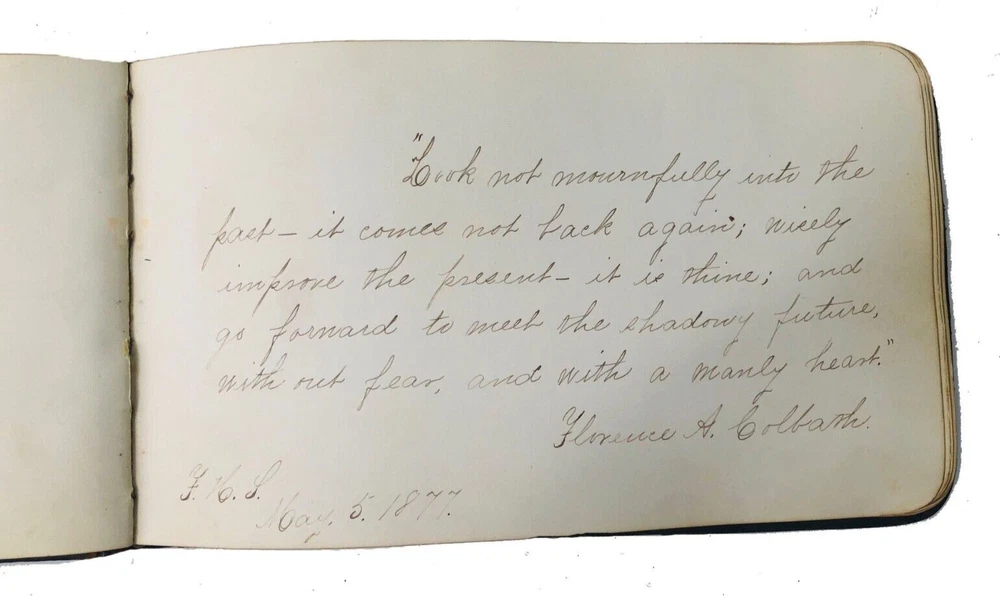 "Look not mournfully into the
past – it comes not back again; wisely
improve the present – it is thine; and
go forward to meet the shadowy future,
with out fear, and with a manly heart."
Florence A. Colbath.
F. H. S.
May. 5. 1877.